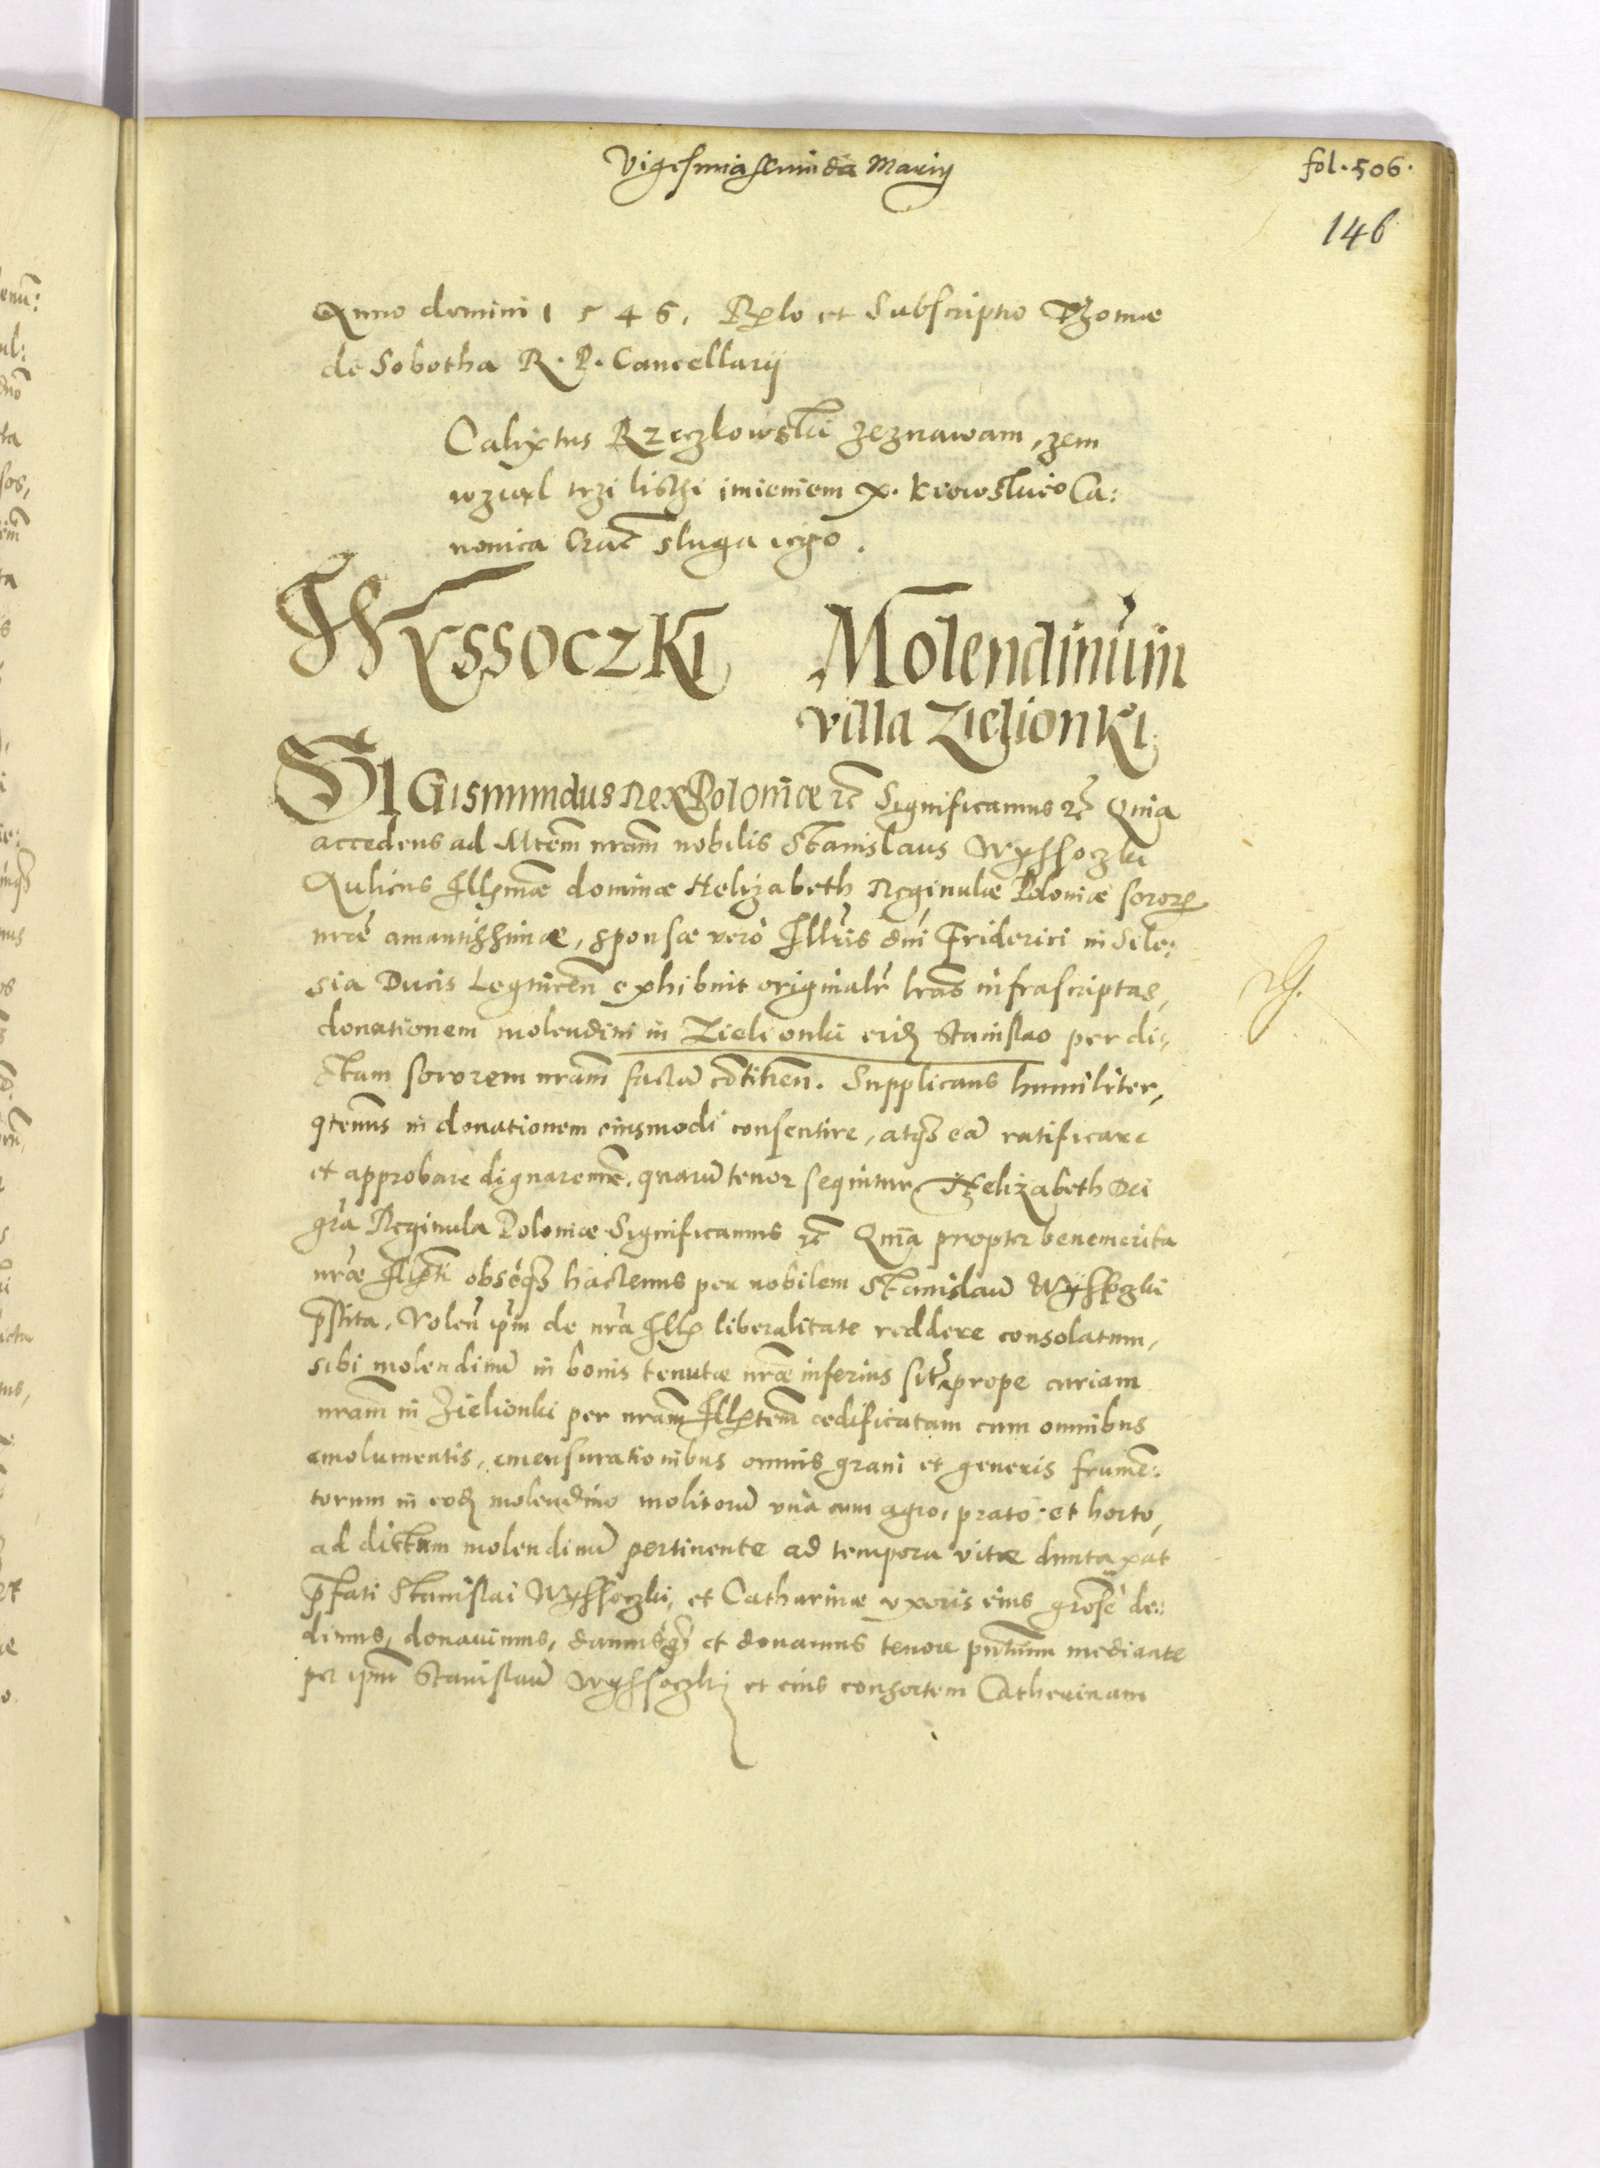 Vigesima secunda Marty
fol. 506.
146
Anno domini 1546. Rplo et Subscriptio Thomae
de Sobotha R. P. Cancellarij
Calixtus Rzeczkowski zeznawam, zem
wzial trzi listhi imieniem X. Krowskie͠o Ca:
nonica Crac͠ sluga iego.
Wyssoczki Molendinum
villa Zielionki
Sigismundus Rex Poloniae ꝛc͠ Significamus ꝛc͠ Quia
accedens ad Mtem͠ nram͠ nobilis Stanislaus Wyssoczki
Aulicus Illmae͠ dominae Helizabeth Reginulae Poloniae soror͠
nrae͠ amantissimae, sponsae vero Illris͠ dni͠ Friderici in Sile:
sia Ducis Legnicen͠ exhibuit originalr͠ lras͠ infrascriptas,
donationem molendini in Zielionki eid͠ Stanislao per di,
ctam sororem nram͠ factā contīnen͠. Supplicans humiliter,
qtenus͠ in donationem eiusmodi consentire, atqȝ eā ratificare
et approbare dignaremur͠. quarū tenor sequitur Helizabeth Dei
gra͠ Reginula Poloniae Significamus ꝛc͠ Quia͠ propter benemerita
nrae͠ Illti͠ obseqȝ hactenus per nobilem Stanislaū Wyssoczki
p͠stita, Volen͠ ip͠m de nra͠ Ill͠ liberalitate reddere consolatum,
sibi molendinū in bonis tenutae nrae͠ inferius sit͠ prope curiam
nram͠ in Zielionki per nram͠ Illtem͠ aedificatam cum omnibus
emolumentis, emensurationibus omnis grani et generis frumē:
torum in eod͠ molendino molitorū una cum agro, prato et horto,
ad dictum molendinū pertinente ad tempora vitae duntaxat
p͠fati Stanislai Wyssoczki, et Catharinae uxoris eius grose͠ de:
dimus, donavimus, damusqȝ et donamus tenore pn͠tium mediante
per ip͠m Stanislaū Wyssoczki et eius consortem Catherinam